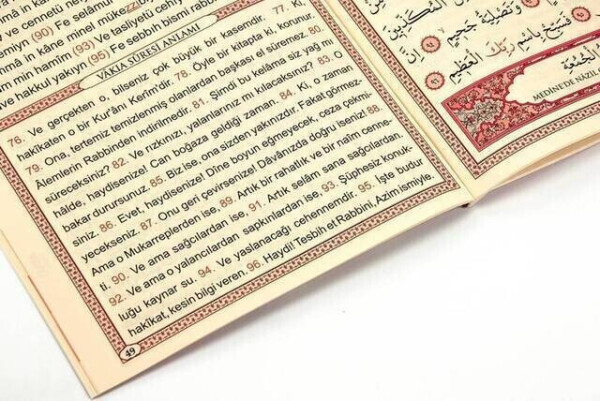 emiyn (90) Fe selâmür
mmâ in kâne minel mükezzi
min hamîm (93) Ve tasliyetü cehıy
ve hakkul yakıyn (95) Fe sebbih bismi rabb
VÂKIA SÛRESİ ANLAMI
76. Ve gerçekten o, bilseniz çok büyük bir kasemdir. 77. Ki,
hakîkaten o bir Kur'ânı Kerîm'dir. 78. Öyle bir kitapta ki, korunur.
79. Ona, tertemiz temizlenmiş olanlardan başkası el süremez. 80.
Âlemlerin Rabbinden indirilmedir. 81. Şimdi bu kelâma siz yağ mı
süreceksiniz? 82. Ve rızkınızı, yalanlarınız mı kılacaksınız? 83. O
hâlde, haydisenize! Can boğaza geldiği zaman. 84. Ki, o zaman
bakar durursunuz. 85. Biz ise, ona sizden yakınızdır. Fakat görmez-
siniz. 86. Evet, haydisenize! Dîne boyun eğmeyecek, ceza çekmi-
yecekseniz. 87. Onu geri çevirsenize! Dâvânızda doğru iseniz! 88.
Ama o Mukarreplerden ise, 89. Artık bir rahatlık ve bir naîm cenne-
ti. 90. Ve ama sağcılardan ise, 91. Artık selâm sana sağcılardan.
92. Ve ama o yalancılardan sapkınlardan ise. 93. Şüphesiz konuk-
luğu kaynar su. 94. Ve yaslanacağı cehennemdir. 95. İşte budur
hakîkat, kesin bilgi veren. 96. Haydi! Tesbih et Rabbini, Azîm ismiyle.
49
وَتَصْلِيَةُ جَحِيمٍ
فَسَبِّحْ بِاسْمِ رَبِّكَ الْعَظِيمِ
MEDİNE'DE NÂZİL